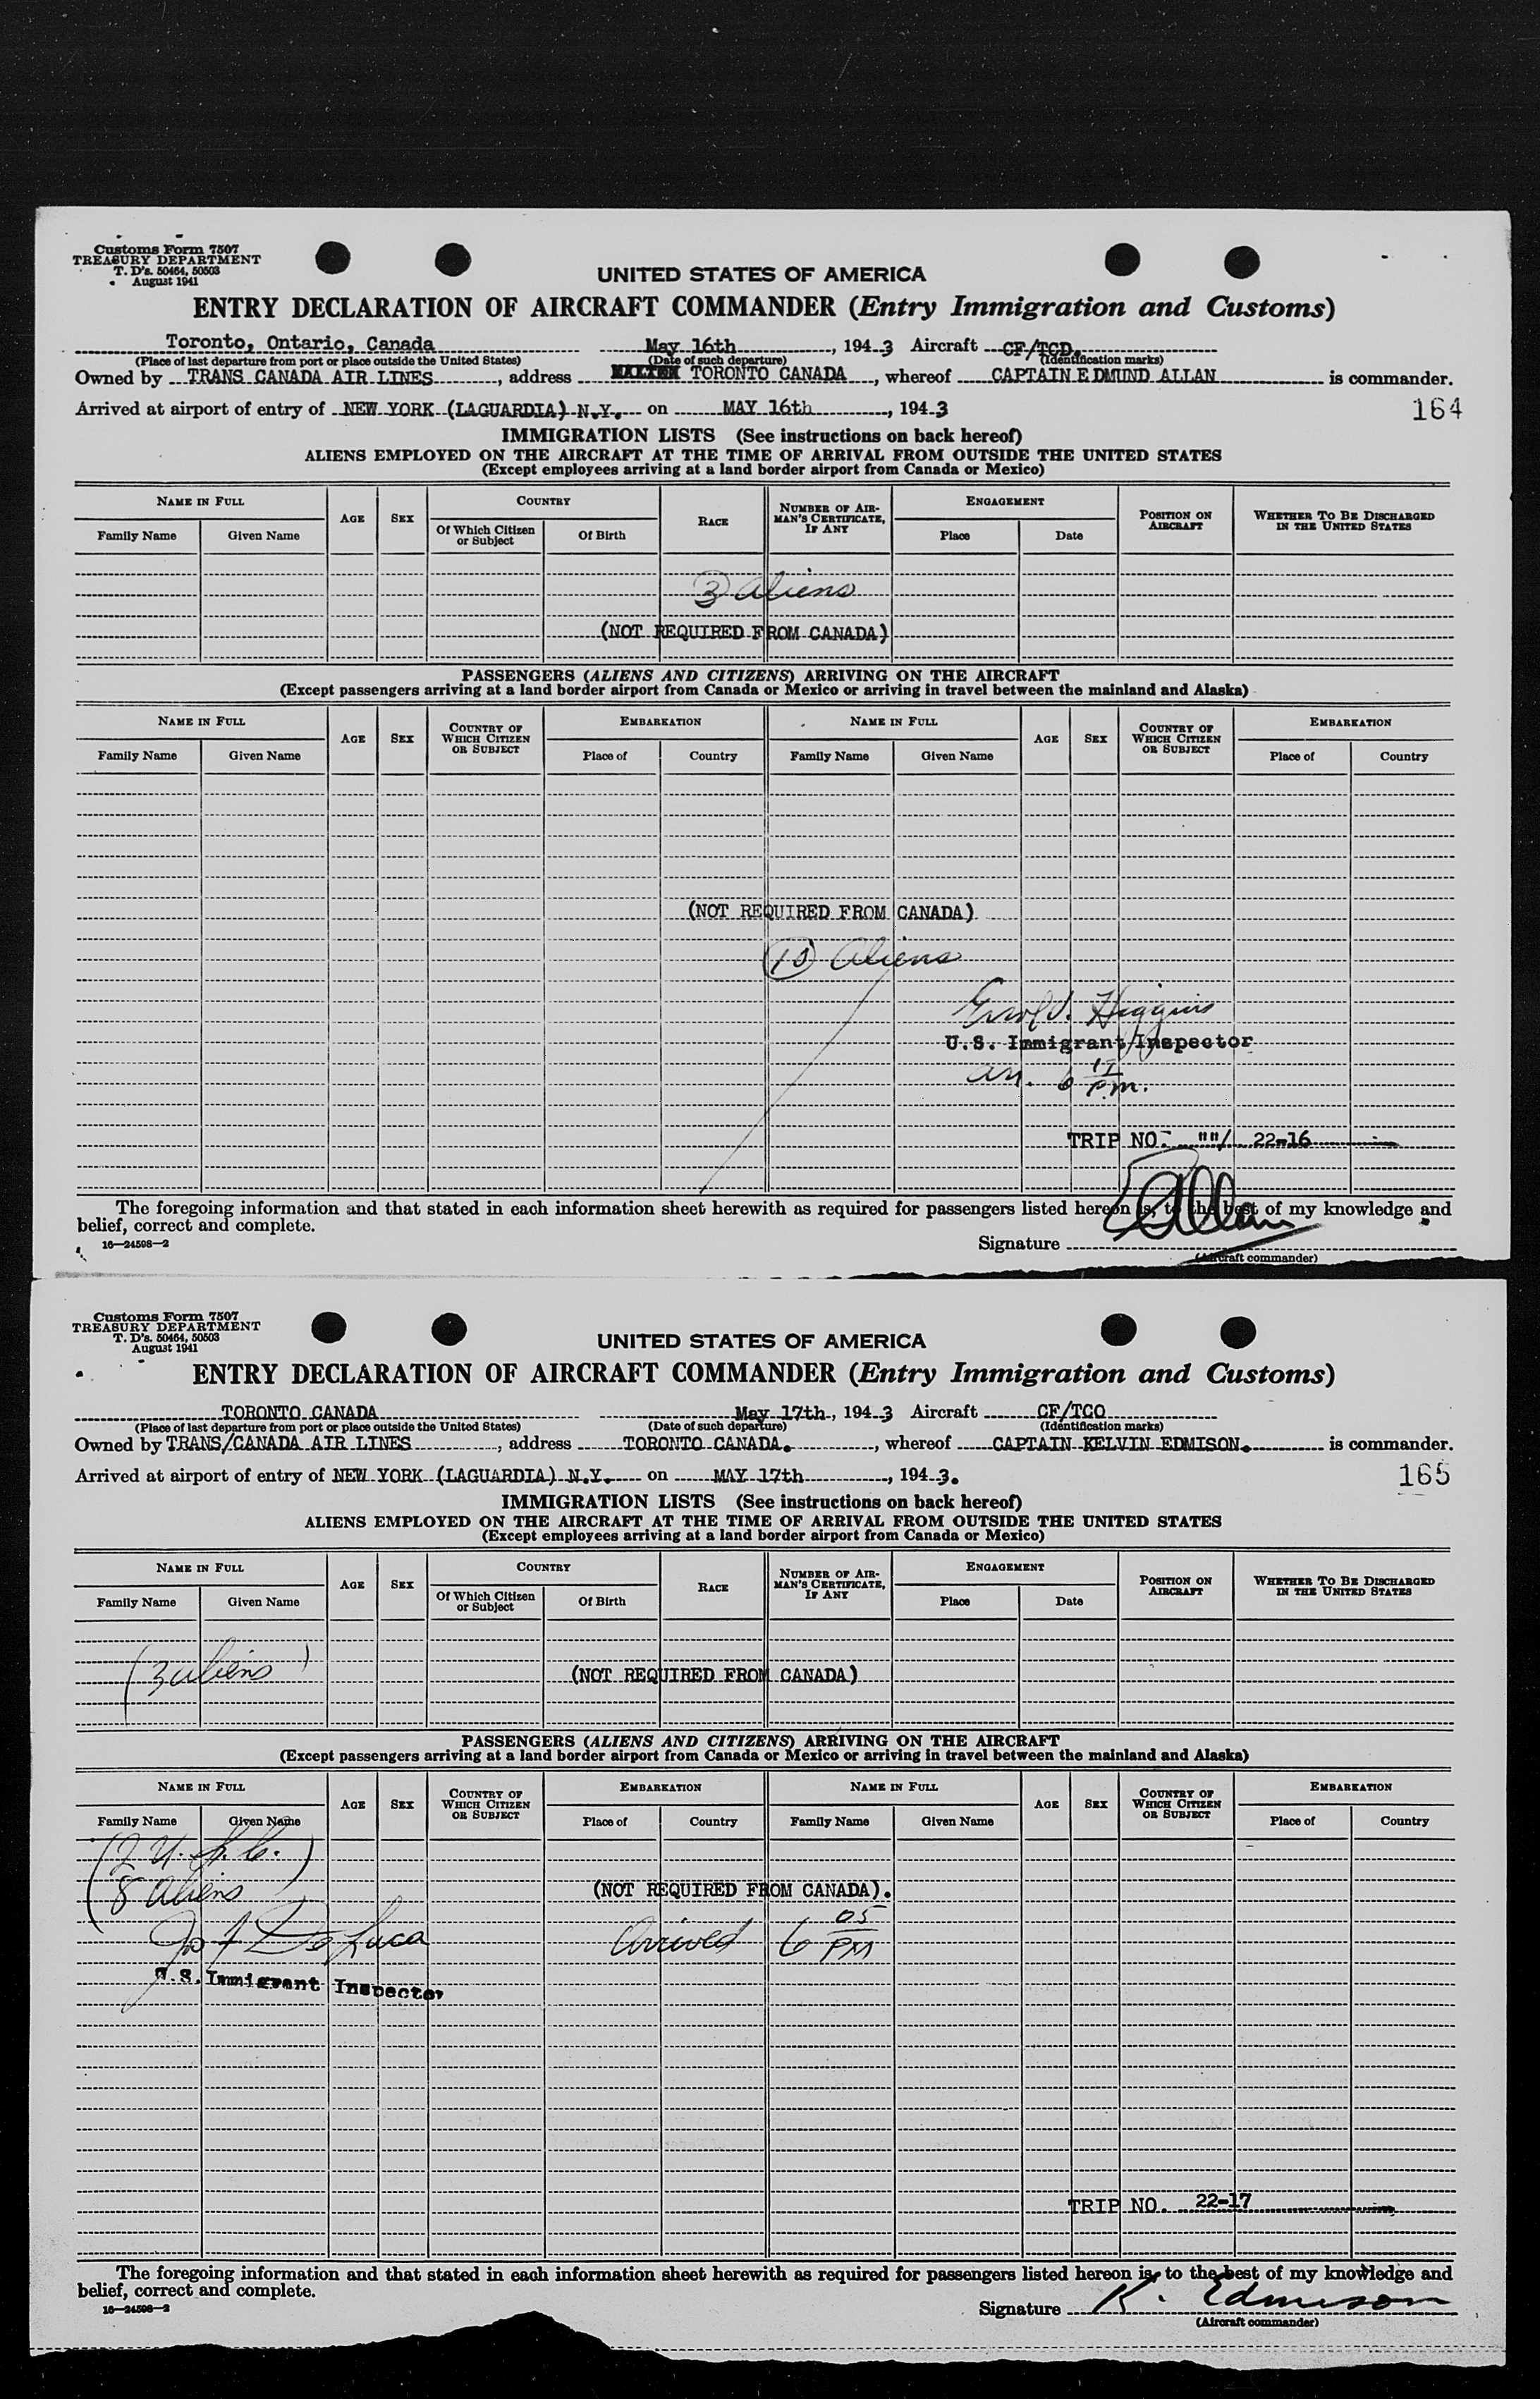 Customs Form 7507
TREASURY DEPARTMENT
T. D's. 50464, 50503
August 1941
UNITED STATES OF AMERICA
ENTRY DECLARATION OF AIRCRAFT COMMANDER (Entry Immigration and Customs)
Toronto, Ontario, Canada May 16th, 1943 Aircraft CF/TCD.
(Place of last departure from port or place outside the United States) (Date of such departure) (Identification marks)
Owned by TRANS CANADA AIR LINES, address TORONTO CANADA, whereof CAPTAIN EDMUND ALLAN is commander.
Arrived at airport of entry of NEW YORK (LAGUARDIA) N.Y. on MAY 16th, 1943
164
IMMIGRATION LISTS (See instructions on back hereof)
ALIENS EMPLOYED ON THE AIRCRAFT AT THE TIME OF ARRIVAL FROM OUTSIDE THE UNITED STATES
(Except employees arriving at a land border airport from Canada or Mexico)
NAME IN FULL AGE SEX COUNTRY RACE NUMBER OF AIRMAN'S CERTIFICATE, IF ANY ENGAGEMENT POSITION ON AIRCRAFT WHETHER TO BE DISCHARGED IN THE UNITED STATES
Family Name Given Name Of Which Citizen or Subject Of Birth Place Date
3 aliens
(NOT REQUIRED FROM CANADA)
PASSENGERS (ALIENS AND CITIZENS) ARRIVING ON THE AIRCRAFT
(Except passengers arriving at a land border airport from Canada or Mexico or arriving in travel between the mainland and Alaska)
NAME IN FULL AGE SEX COUNTRY OF WHICH CITIZEN OR SUBJECT EMBARKATION NAME IN FULL AGE SEX COUNTRY OF WHICH CITIZEN OR SUBJECT EMBARKATION
Family Name Given Name Place of Country Family Name Given Name Place of Country
(NOT REQUIRED FROM CANADA)
10 Aliens
Higgins
U.S. Immigrant Inspector
arr. 6 P.M.
TRIP NO. ""/ 22-16
The foregoing information and that stated in each information sheet herewith as required for passengers listed hereon is, to the best of my knowledge and
belief, correct and complete.
16—24508—2
Signature EAllan
(Aircraft commander)
Customs Form 7507
TREASURY DEPARTMENT
T. D's. 50464, 50503
August 1941
UNITED STATES OF AMERICA
ENTRY DECLARATION OF AIRCRAFT COMMANDER (Entry Immigration and Customs)
TORONTO CANADA May 17th, 1943 Aircraft CF/TCO
(Place of last departure from port or place outside the United States) (Date of such departure) (Identification marks)
Owned by TRANS/CANADA AIR LINES, address TORONTO CANADA., whereof CAPTAIN KELVIN EDMISON. is commander.
Arrived at airport of entry of NEW YORK (LAGUARDIA) N.Y. on MAY 17th, 1943.
165
IMMIGRATION LISTS (See instructions on back hereof)
ALIENS EMPLOYED ON THE AIRCRAFT AT THE TIME OF ARRIVAL FROM OUTSIDE THE UNITED STATES
(Except employees arriving at a land border airport from Canada or Mexico)
NAME IN FULL AGE SEX COUNTRY RACE NUMBER OF AIRMAN'S CERTIFICATE, IF ANY ENGAGEMENT POSITION ON AIRCRAFT WHETHER TO BE DISCHARGED IN THE UNITED STATES
Family Name Given Name Of Which Citizen or Subject Of Birth Place Date
(3 aliens)
(NOT REQUIRED FROM CANADA)
PASSENGERS (ALIENS AND CITIZENS) ARRIVING ON THE AIRCRAFT
(Except passengers arriving at a land border airport from Canada or Mexico or arriving in travel between the mainland and Alaska)
NAME IN FULL AGE SEX COUNTRY OF WHICH CITIZEN OR SUBJECT EMBARKATION NAME IN FULL AGE SEX COUNTRY OF WHICH CITIZEN OR SUBJECT EMBARKATION
Family Name Given Name Place of Country Family Name Given Name Place of Country
(2 U.S.C.)
(8 Aliens
(NOT REQUIRED FROM CANADA).
Jos F DeLuca Arrived 6 05 PM
U.S. Immigrant Inspector
TRIP NO. 22-17
The foregoing information and that stated in each information sheet herewith as required for passengers listed hereon is, to the best of my knowledge and
belief, correct and complete.
16—24508—2
Signature K. Edmison
(Aircraft commander)